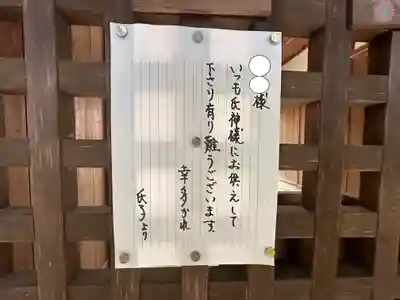 ○○様
いつも氏神様にお供えして
下さり有り難うございます。
幸多かれ
氏子より